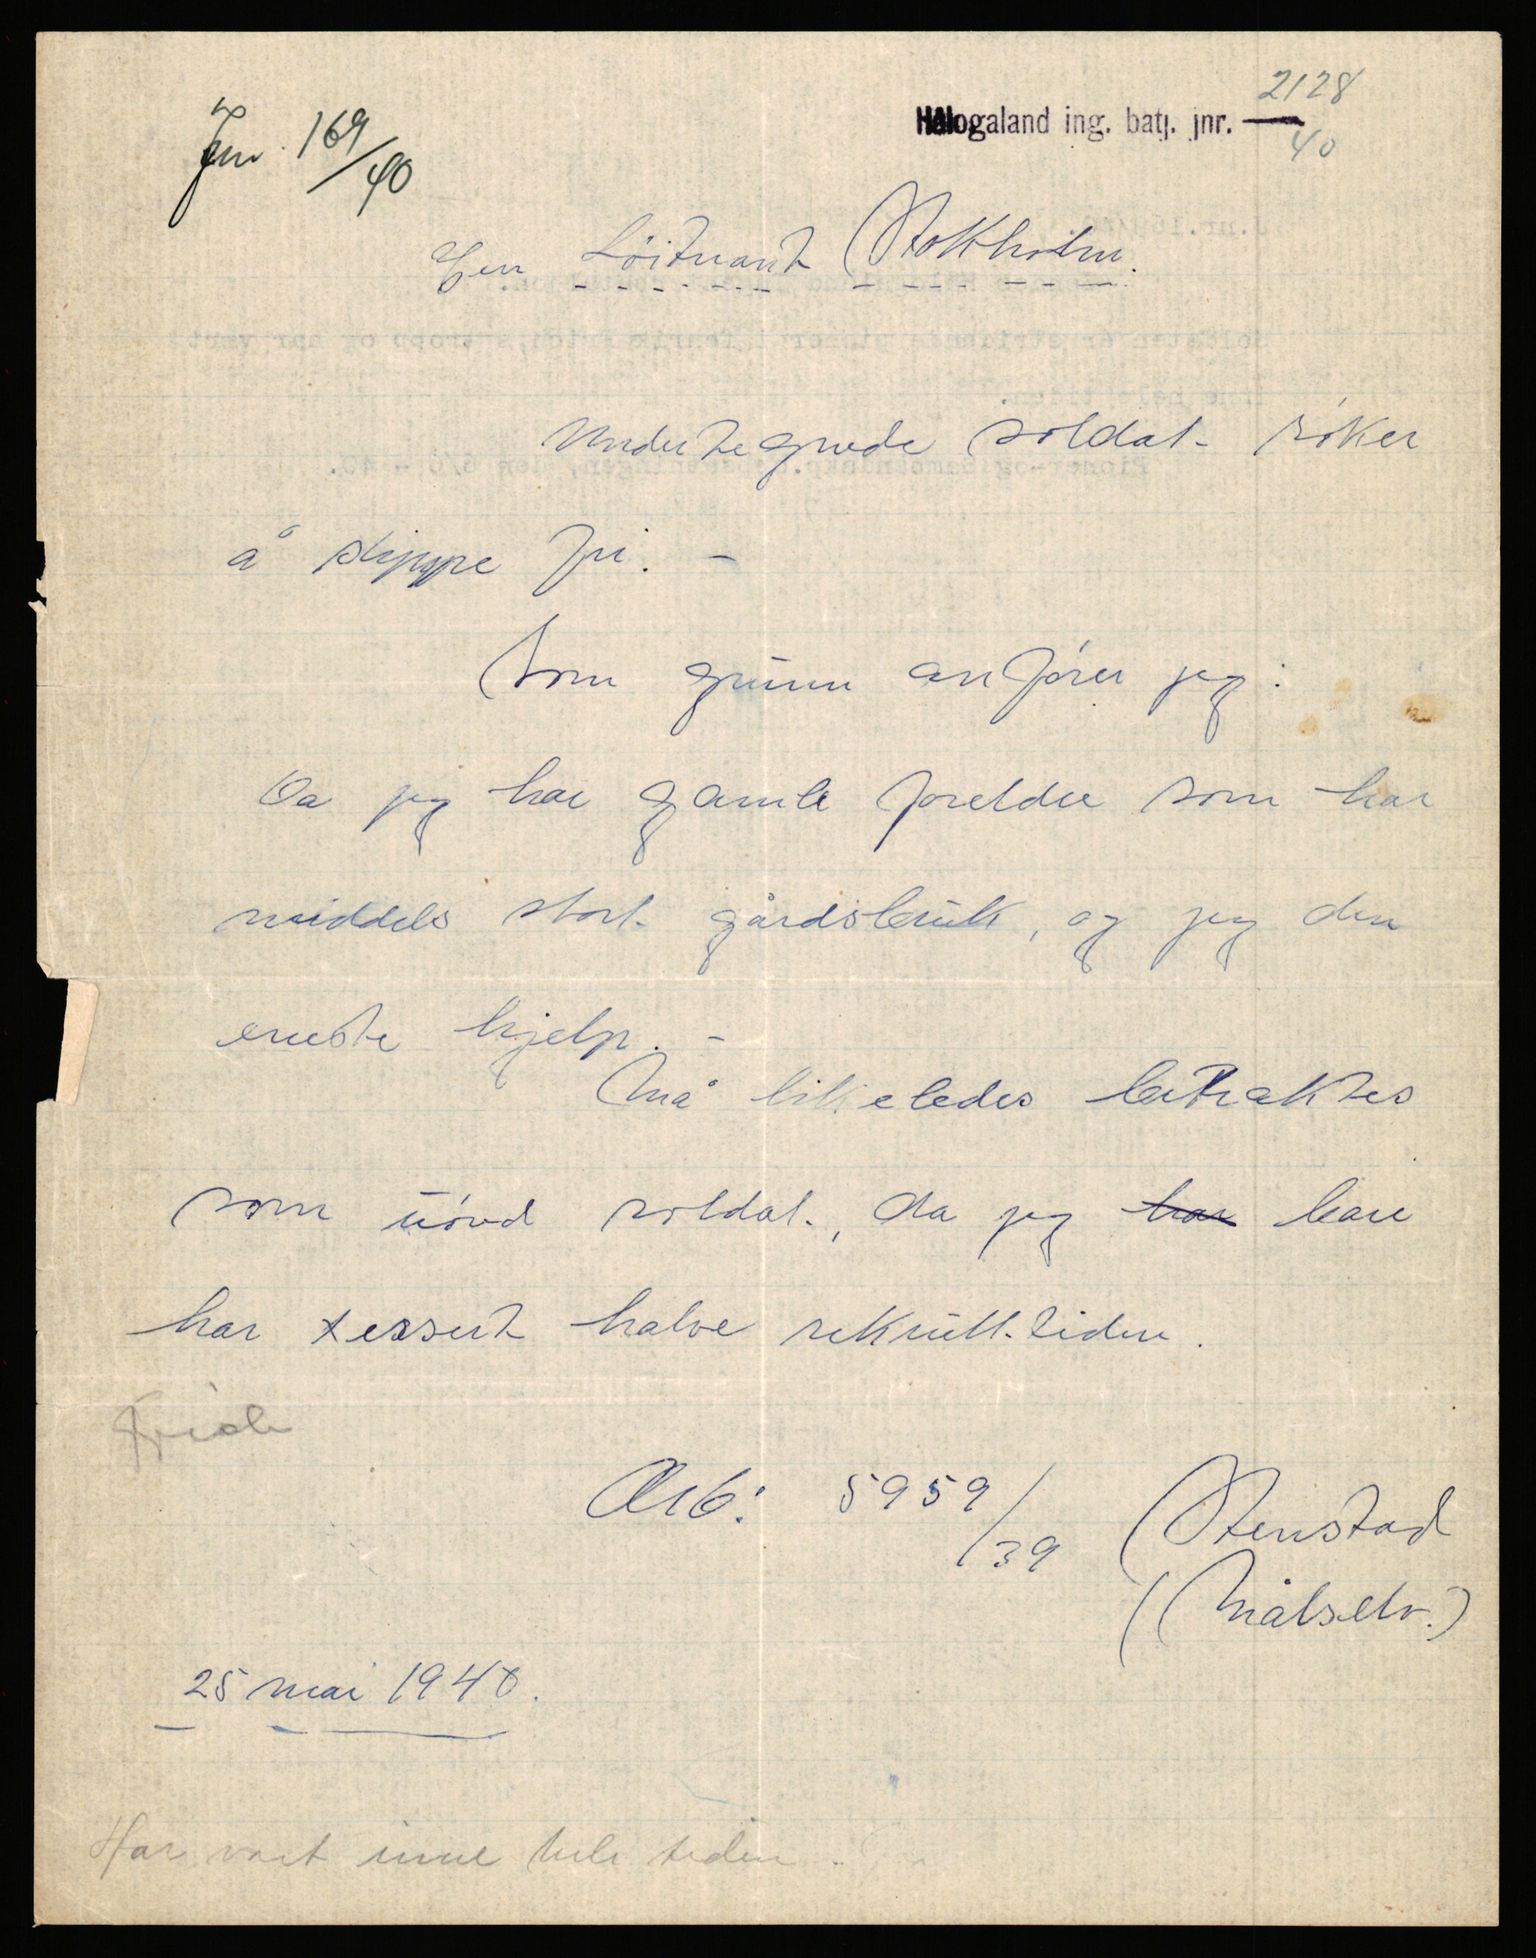 Jnr. 169/40
Hålogaland ing. batj. jnr. 2128/40
Herr Löitnant Stokholm.
Undertegnede soldat söker
å slippe fri. –
Som grunn anförer jeg:
Da jeg har gamle foreldre som har
middels stort gårdsbruk, og jeg den
eneste hjelp. –
Må likeledes betraktes
som uövd soldat, da jeg har bare
har exersert halve rekrutt-tiden.
Arb: 5959/39 Stenstad
(Målselv.)
25 mai 1940.
Har vært inne hele tiden.